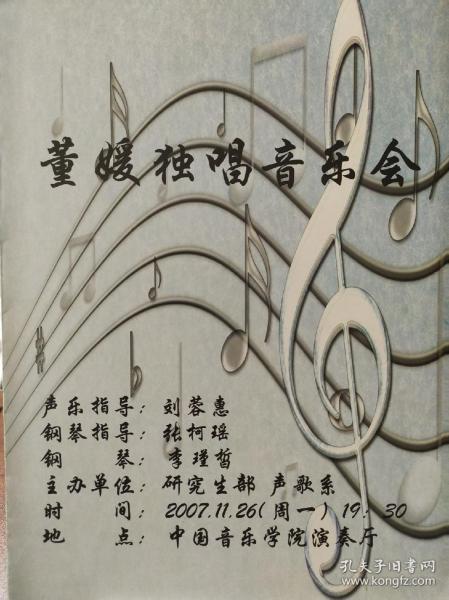 董媛独唱音乐会
声乐指导：刘蓉惠
钢琴指导：张柯瑶
钢琴：李瑾皙
主办单位：研究生部 声歌系
时间：2007.11.26(周一) 19：30
地点：中国音乐学院演奏厅
孔夫子旧书网
www.kongfz.com